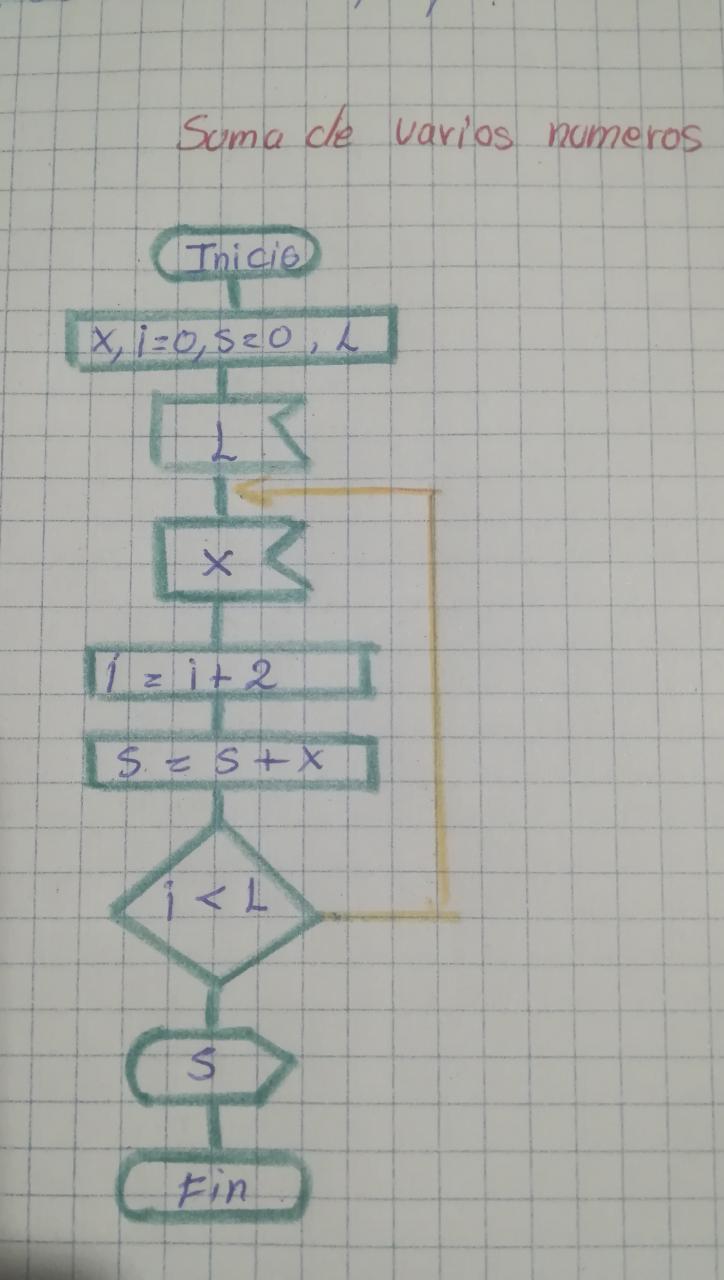 Suma de varios numeros
Inicio
X, i=0, s=0, L
L
X
i = i + 2
S = S + X
i < L
S
Fin